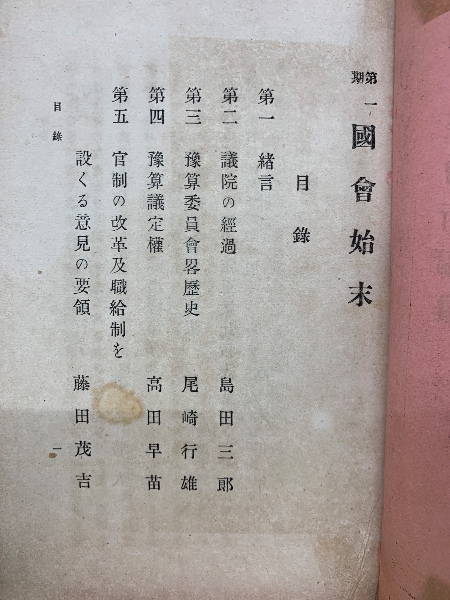 第一期 國會始末
目錄
第一 緒言
第二 議院の經過 島田三郎
第三 豫算委員會畧歷史 尾崎行雄
第四 豫算議定權 高田早苗
第五 官制の改革及職給制を
設くる意見の要領 藤田茂吉
目錄 一